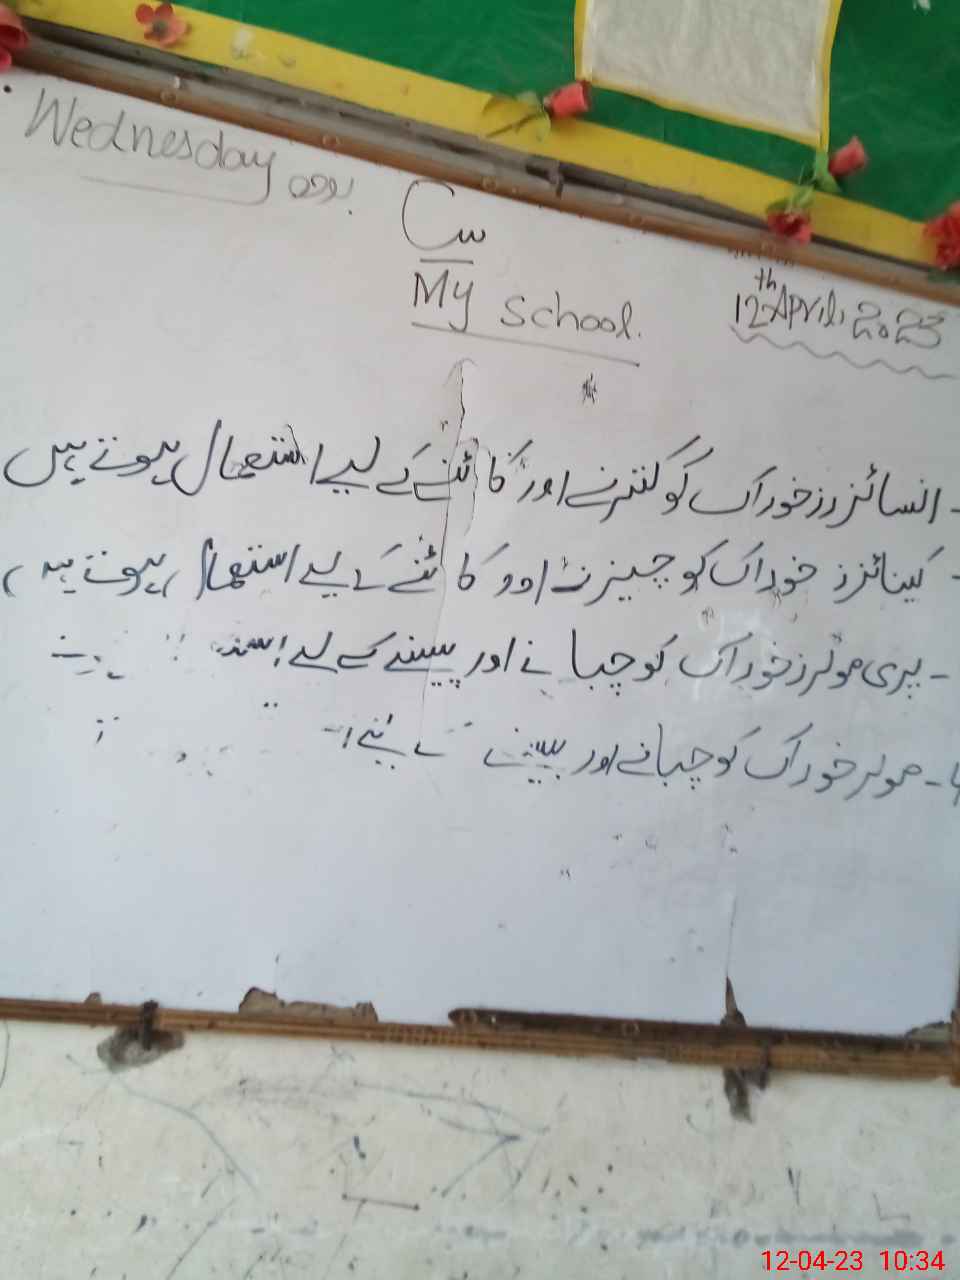 Wednesday
Cw
My school.
12th April, 2023
- انسائزرز خوراک کو کترنے اور کاٹنے کے لیے استعمال ہوتے ہیں
- کینائزز خوراک کو چیرنے اور کاٹنے کے لیے استعمال ہوتے ہیں
- پری مولرز خوراک کو چبانے اور پیسنے کے لیے
- مولر خوراک کو چبانے اور پیسنے کے لیے
12-04-23 10:34